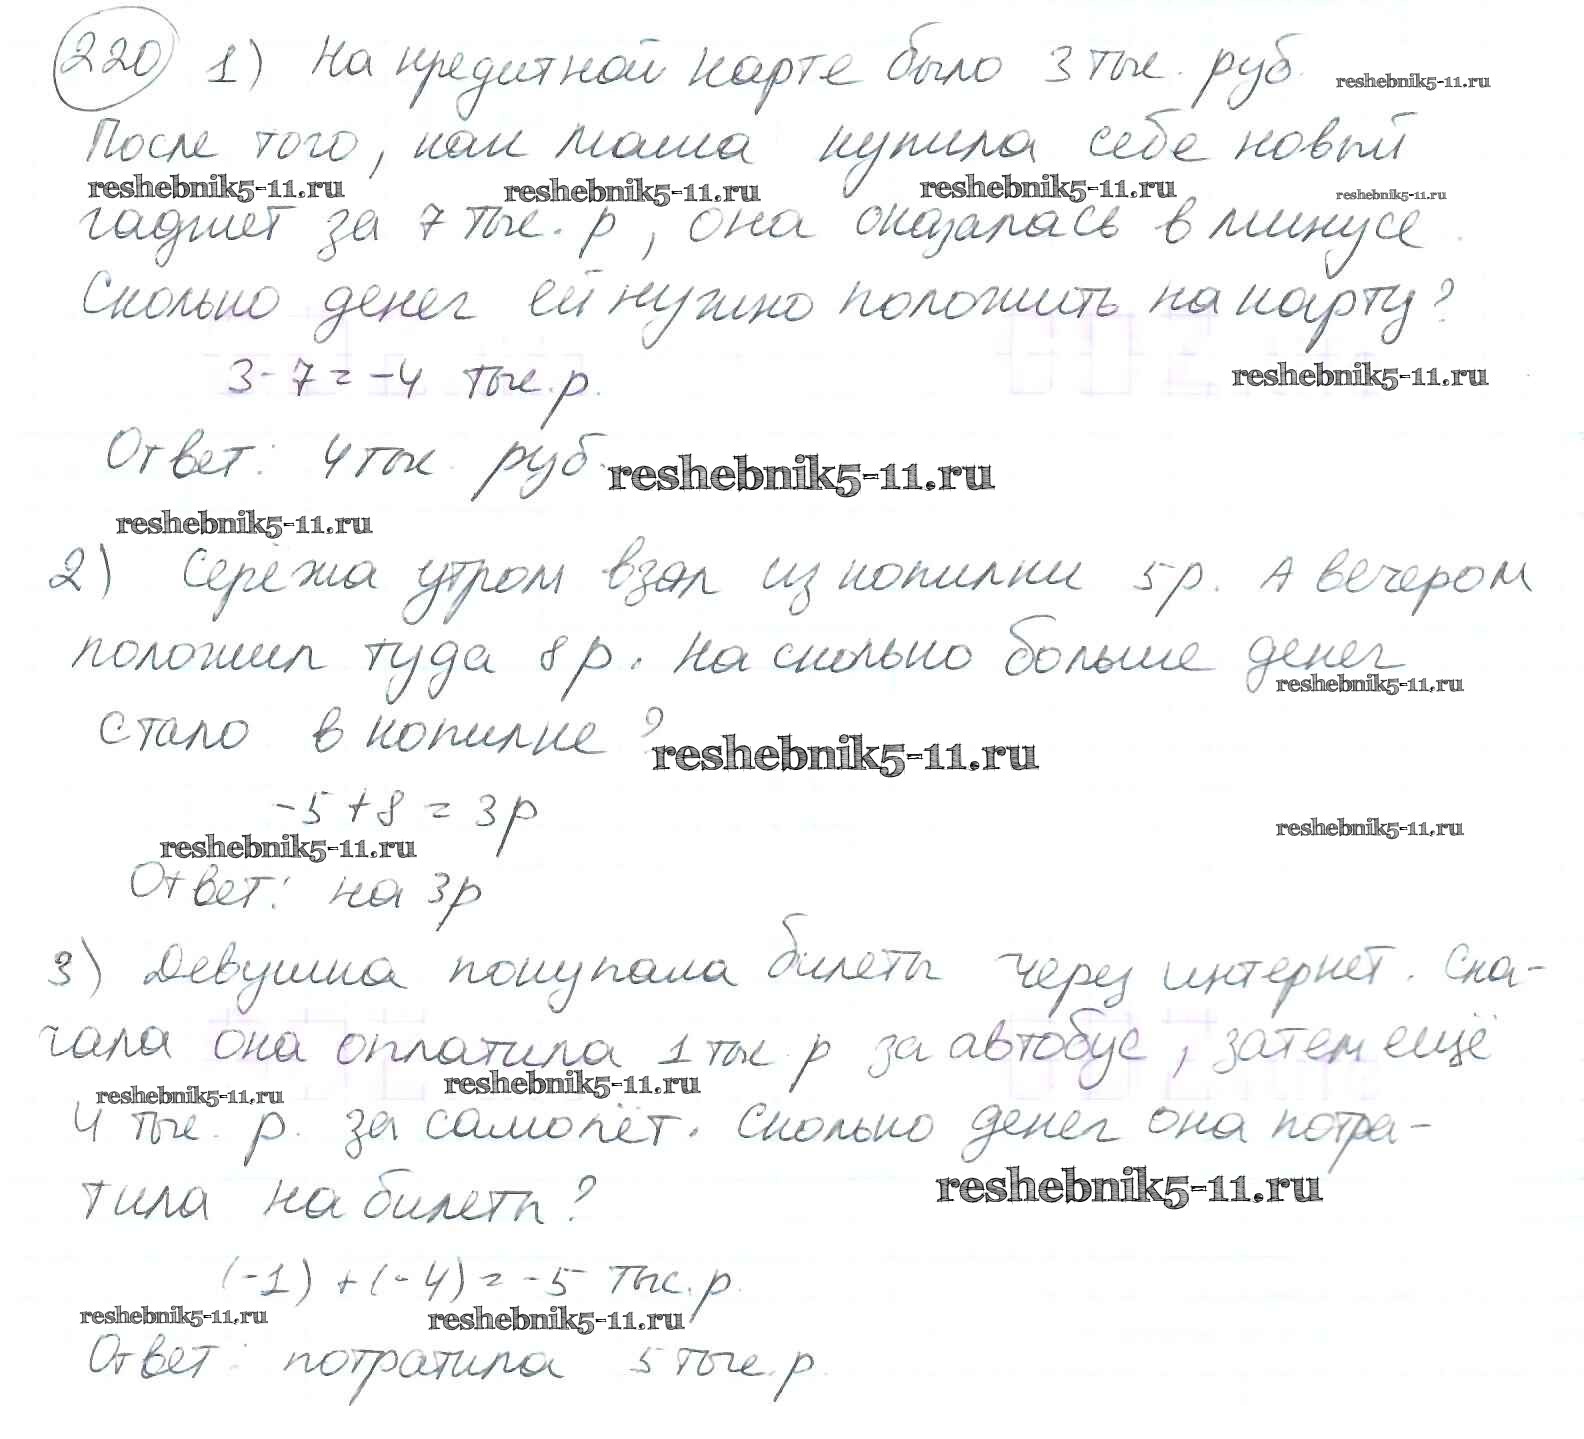 220 1) На кредитной карте было 3 тыс. руб. reshebnik5-11.ru
После того, как Маша купила себе новый
reshebnik5-11.ru reshebnik5-11.ru reshebnik5-11.ru reshebnik5-11.ru
гаджет за 7 тыс. р, она оказалась в минусе.
Сколько денег ей нужно положить на карту?
3 - 7 = -4 тыс. р. reshebnik5-11.ru
Ответ: 4 тыс. руб. reshebnik5-11.ru
reshebnik5-11.ru
2) Серёжа утром взял из копилки 5 р. А вечером
положил туда 8 р. На сколько больше денег
reshebnik5-11.ru
стало в копилке? reshebnik5-11.ru
-5 + 8 = 3 р
reshebnik5-11.ru reshebnik5-11.ru
Ответ: на 3 р
3) Девушка покупала билеты через интернет. Сна-
чала она оплатила 1 тыс. р за автобус, затем ещё
reshebnik5-11.ru reshebnik5-11.ru
4 тыс. р. за самолёт. Сколько денег она потра-
тила на билеты? reshebnik5-11.ru
(-1) + (-4) = -5 тыс. р.
reshebnik5-11.ru reshebnik5-11.ru
Ответ: потратила 5 тыс. р.